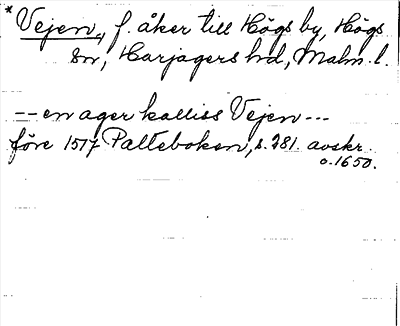 * Vejen, f. åker till Högs by, Högs
sn, Harjagers hd, Malm. l.
-- en ager kalliss Vejen ---
före 1517 Palteboken, s. 281. avskr.
o. 1650.